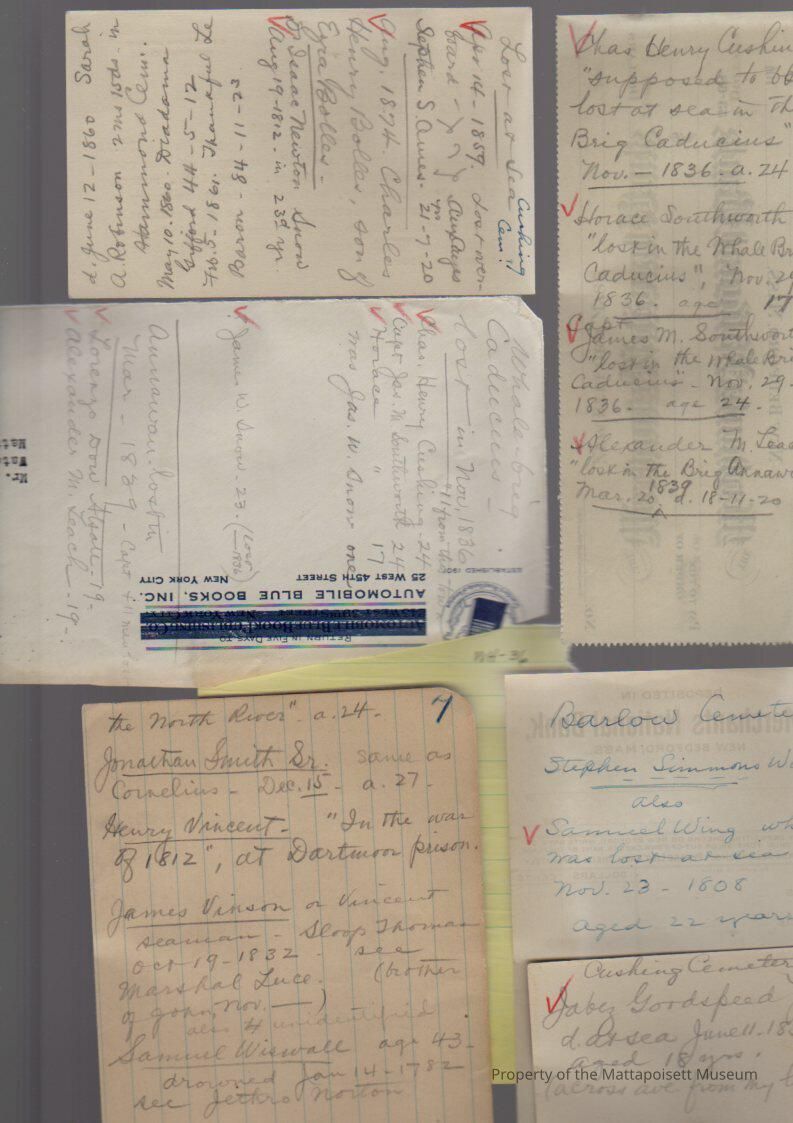 Lost at Sea Cushing Cem.
Apr 14 - 1859. Lost over-
board -
Stephen S. Ames. 21-7-20
Aug. 1874. Charles
Henry Bolles, son of
Ezra Bolles -
Isaac Newton Snow
Aug 19-1812 - in 23d yr.
Baron - 84-11-23
Feb. 5-1861. Thankful Le
Gifford 44-5-12
May 10. 1860. Diadama
Hammond Cem.
A Robinson 2 ms 15 ds. in
d. June 12-1860 Sarah
Chas Henry Cushin
"supposed to be
lost at sea in th
Brig Caducius"
Nov. - 1836. a. 24
Horace Southworth
"lost in the Whale Br
Caducius", Nov. 29
1836. age 17
Capt
James M. Southwort
"lost in the Whale Bri
Caducius" - Nov. 29 -
1836. age 24.
Alexander M. Leac
"lost in the Brig Annaw
Mar. 20 1839 d. 18-11-20
Whale brig
Caducius -
lost in Nov. 1836
"11 from this town"
Chas. Henry Cushing - 24
Capt Jas. M Southworth 24
Horace " 17
was Jas. W. Snow one
James W. Snow - 23. (Lost 1836)
Annawan - lost in
Mar - 1839 - Capt + 11 men
Lorenzo Dow - 19 -
Alexander M. Leach - 19 -
ESTABLISHED 190
RETURN IN FIVE DAYS TO
AUTOMOBILE BLUE BOOK PUBLISHING CO.
AUTOMOBILE BLUE BOOKS, INC.
25 WEST 45TH STREET
NEW YORK CITY
Mr.
Wat
Matt
7
the North River". a. 24.
Jonathan Smith Sr. same as
Cornelius - Dec. 15 - a. 27.
Henry Vincent - "In the war
of 1812", at Dartmoor prison.
James Vinson or Vincent
seaman - Sloop Thomas
Oct 19-1832 - see
Marshal Luce. (brother
of John, Nov. —)
also 4 unidentified
Samuel Wiswall age 43 -
drowned Jan 14-1782
see Jethro Norton
DEPOSITED IN
Merchants National Bank,
NEW BEDFORD, MASS.
DOLLARS
Barlow Cemete
Stephen Simmons W
also
Samuel Wing wh
was lost at sea
Nov. 23 - 1808
aged 22 years
Cushing Cemetery
Jabez Goodspeed
d. at sea June 11 - 18
aged 18 yrs.
(across ave from my
Property of the Mattapoisett Museum